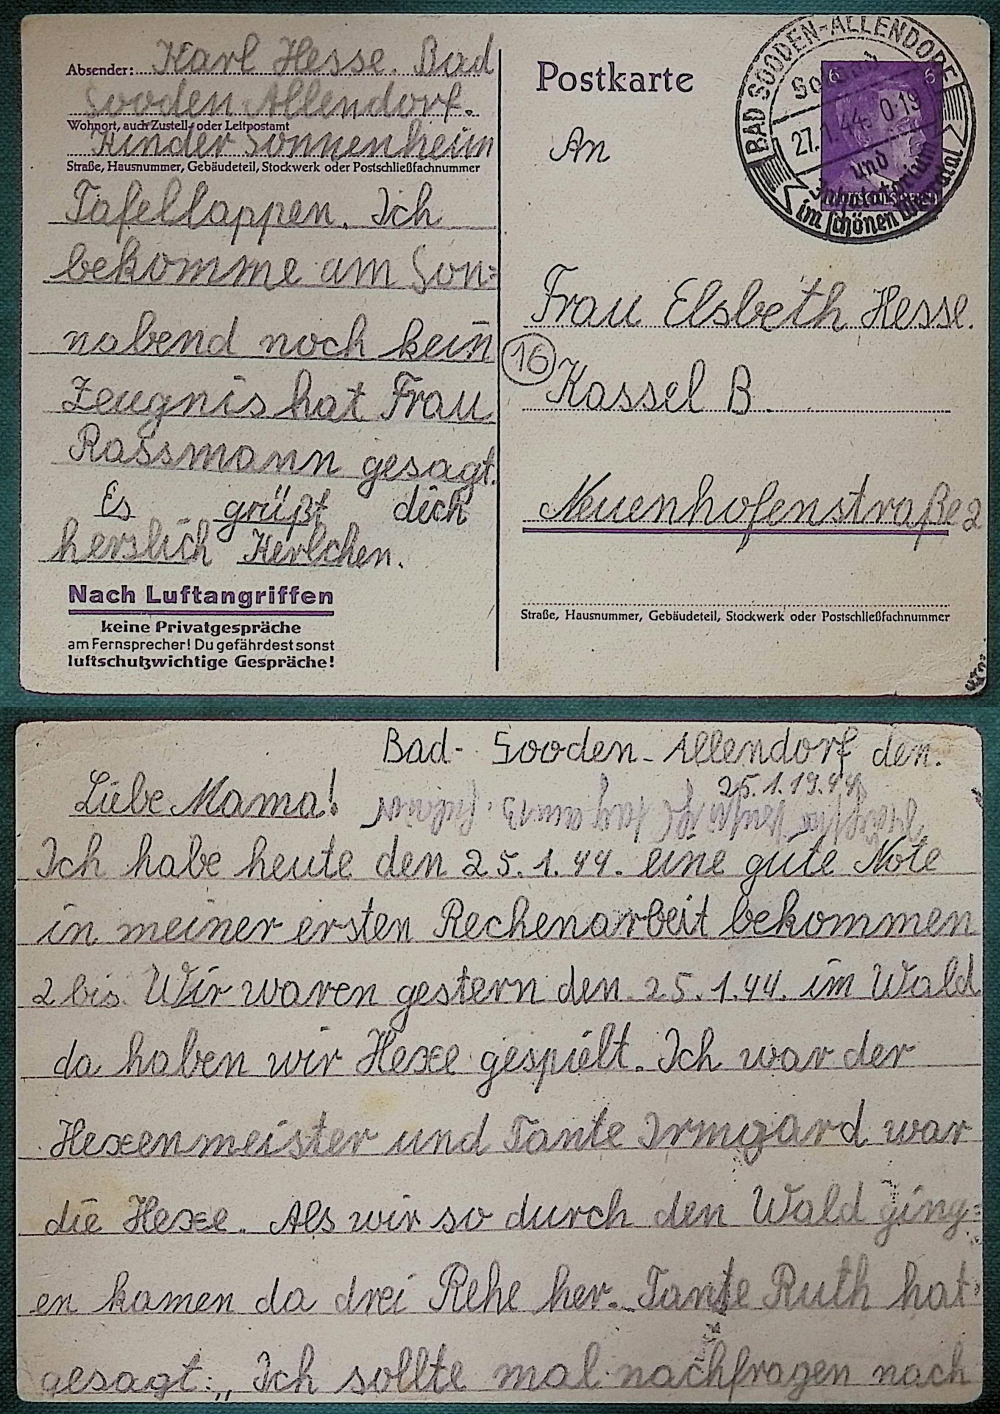 Absender: Karl Hesse. Bad
Sooden Allendorf.
Wohnort, auch Zustell- oder Leitpostamt
Kinder Sonnenheim
Straße, Hausnummer, Gebäudeteil, Stockwerk oder Postschließfachnummer
Tafellappen. Ich
bekomme am Son=
nabend noch kein
Zeugnis hat Frau
Rassmann gesagt.
Es grüßt dich
herslich Kerlchen.
Nach Luftangriffen
keine Privatgespräche
am Fernsprecher! Du gefährdest sonst
luftschutzwichtige Gespräche!
Postkarte
An
Frau Elsbeth Hesse.
16 Kassel B.
Neuenhofenstraße 2
Straße, Hausnummer, Gebäudeteil, Stockwerk oder Postschließfachnummer
BAD SOODEN-ALLENDORF
27.1.44. 0-19
und
Inhalatorium
im schönen Werratal
6 6
Bad- Sooden-Allendorf den.
25.1.1944
Liebe Mama!
Ich habe heute den 25.1.44. eine gute Note
in meiner ersten Rechenarbeit bekommen
2 bis. Wir waren gestern den 25.1.44. im Wald
da haben wir Hexe gespielt. Ich war der
Hexenmeister und Tante Irmgard war
die Hexe. Als wir so durch den Wald ging=
en kamen da drei Rehe her. Tante Ruth hat
gesagt: „Ich sollte mal nachfragen nach